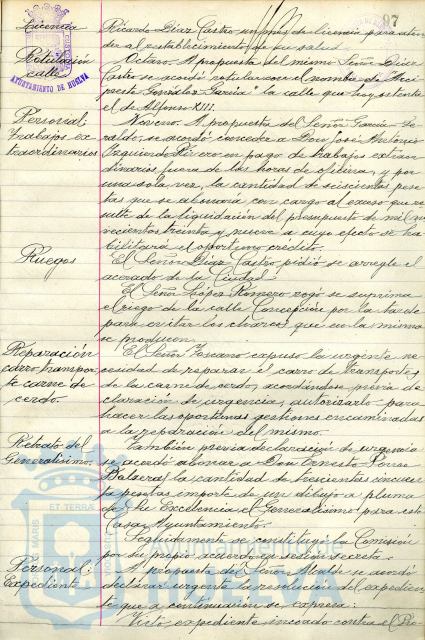 97
Licencia
Ricardo Díez Castro un mes de licencia para aten
der al restablecimiento de su salud.
Rotulación
calle
Octavo. A propuesta del mismo Señor Díaz
Castro se acordó rotular con el nombre de "Arci
preste González García" la calle que hoy ostenta
el de Alfonso XIII.
AYUNTAMIENTO DE HUELVA
Personal:
trabajos ex
traordinarios
Noveno. A propuesta del Señor García
se acordó conceder a Don José Antonio
Izquierdo en pago de trabajos extraor
dinarios fuera de las horas de oficina, y por
una sola vez, la cantidad de seiscientas pese
tas que se abonaría con cargo al exceso que re
sulte de la liquidación del presupuesto de mil no
vecientos treinta y nueve a cuyo efecto se ha
bilitará el oportuno crédito.
Ruegos
El Señor Díaz Castro pidió se arregle el
acerado de la Ciudad.
El Señor López Romero rogó se suprima
el riego de la calle Concepción por la tarde
para evitar los charcos que en la misma
se producen.
Reparación
carro transpor
te carne de
cerdo.
El Señor Toscano expuso la urgente ne
cesidad de reparar el carro de transportes
de la carne de cerdo, acordándose, previa de
claración de urgencia, autorizarlo para
hacer las oportunas gestiones encaminadas
a la reparación del mismo.
Retrato del
Generalísimo.
También previa declaración de urgencia
se acordó abonar a Don Ernesto Porras
la cantidad de trescientas cincuen
ta pesetas importe de un dibujo a pluma
de Su Excelencia el Generalísimo para esta
Casa Ayuntamiento.
Seguidamente se constituyó la Comisión
por su propio acuerdo en sesión secreta.
Personal:
Expediente
A propuesta del Señor Alcalde se acordó
declarar urgente la resolución del expedien
te que a continuación se expresa:
Visto expediente incoado contra el